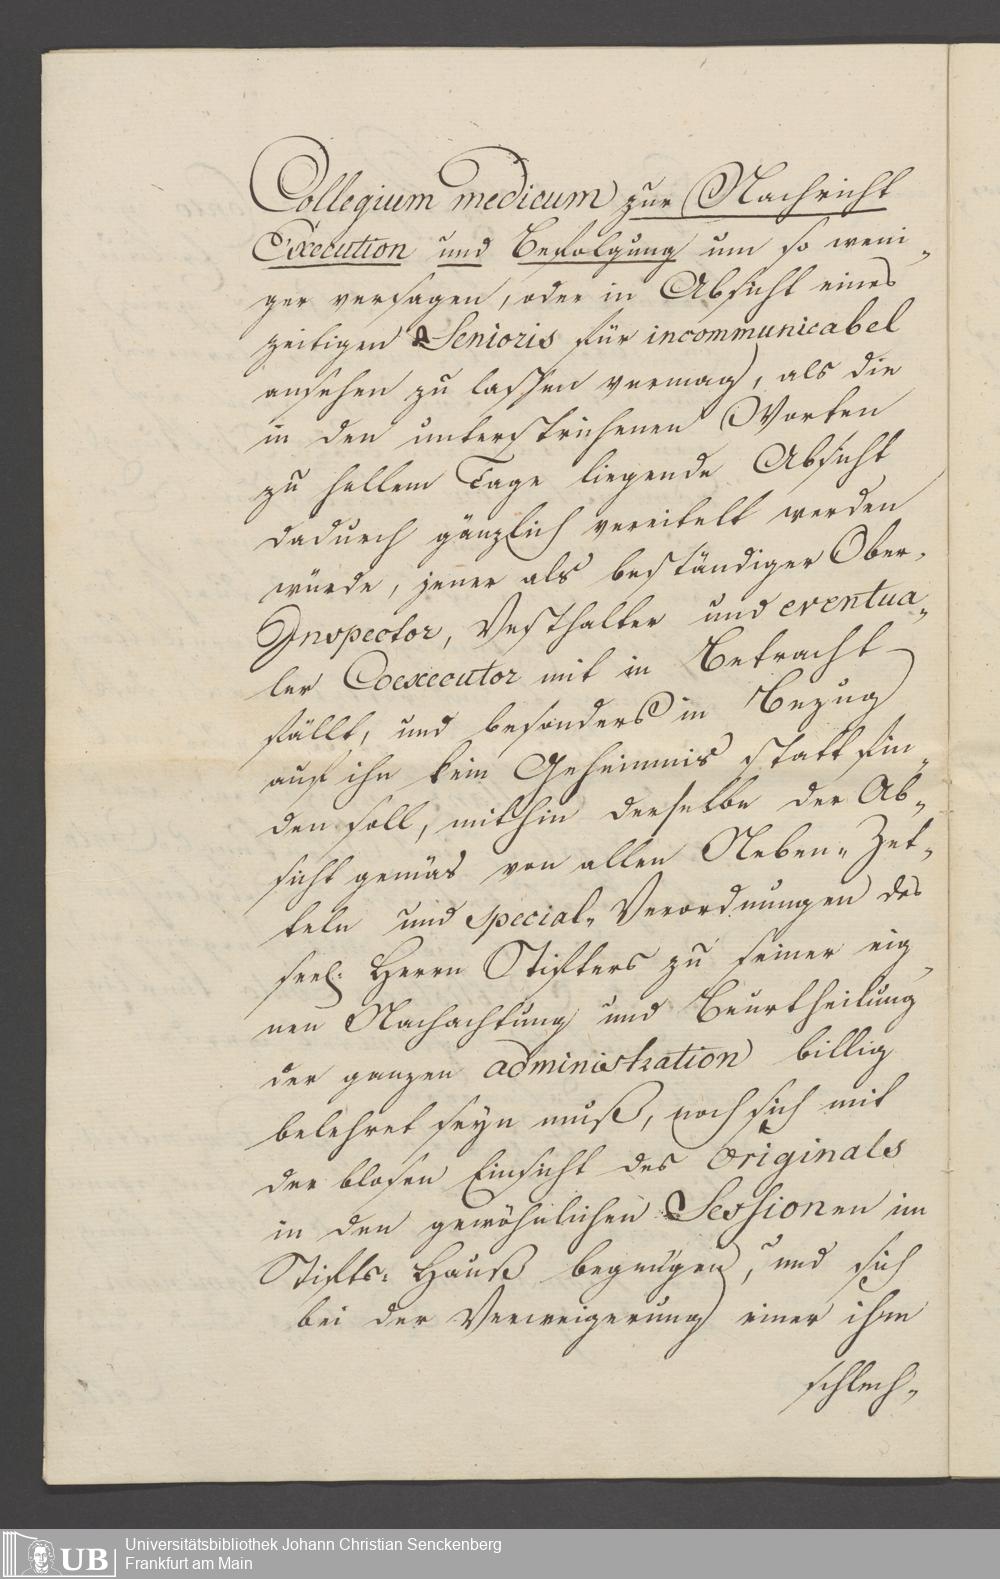 Collegium medicum zur Nachricht
Execution und Befolgung um so weni„
ger versagen, oder in Absicht eines
zeitigen Senioris für incommunicabel
ansehen zu lassen vermag, als die
in den unterstrichenen Worten
zu hellem Tage liegende Absicht
dadurch gänzlich vereitelt werden
würde, jener als beständiger Ober„
Inspector, Vesthalter und eventua„
ler Coexecutor mit in Betracht
fällt, und besonders in Bezug
auf ihn kein Geheimnis statt fin„
den soll, mithin derselbe der Ab„
sicht gemäs von allen Neben„ Zet„
teln und special„ Verordnungen des
seel: Herrn Stifters zu seiner eig„
nen Nachachtung und Beurtheilung
der ganzen administration billig
belehret seyn muß, noch sich mit
der blosen Einsicht des Originals
in den gewöhnlichen Sessionen im
Stifts: Hauß begnügen, und sich
bei der Verweigerung einer ihm
schlech„
UB
Universitätsbibliothek Johann Christian Senckenberg
Frankfurt am Main